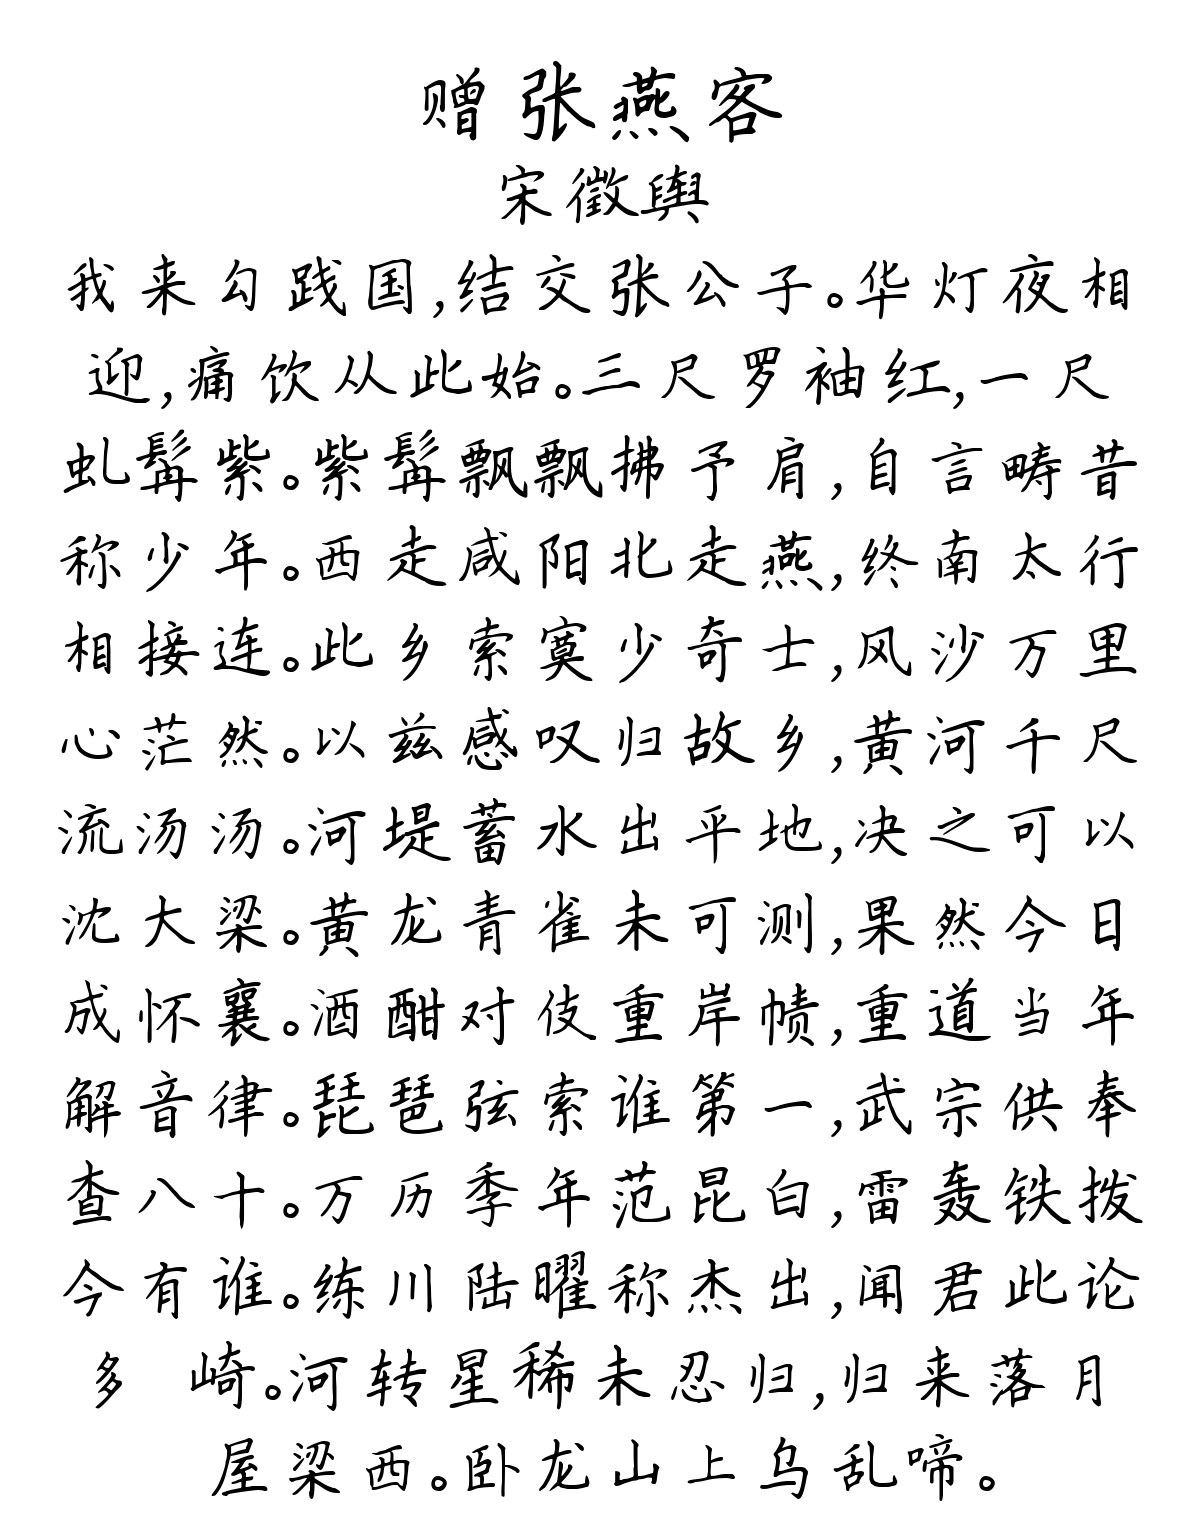 赠张燕客
宋徵舆
我来勾践国,结交张公子。华灯夜相
迎,痛饮从此始。三尺罗袖红,一尺
虬髯紫。紫髯飘飘拂予肩,自言畴昔
称少年。西走咸阳北走燕,终南太行
相接连。此乡索寞少奇士,风沙万里
心茫然。以兹感叹归故乡,黄河千尺
流汤汤。河堤蓄水出平地,决之可以
沈大梁。黄龙青雀未可测,果然今日
成怀襄。酒酣对伎重岸帻,重道当年
解音律。琵琶弦索谁第一,武宗供奉
查八十。万历季年范昆白,雷轰铁拨
今有谁。练川陆曜称杰出,闻君此论
多 崎。河转星稀未忍归,归来落月
屋梁西。卧龙山上乌乱啼。